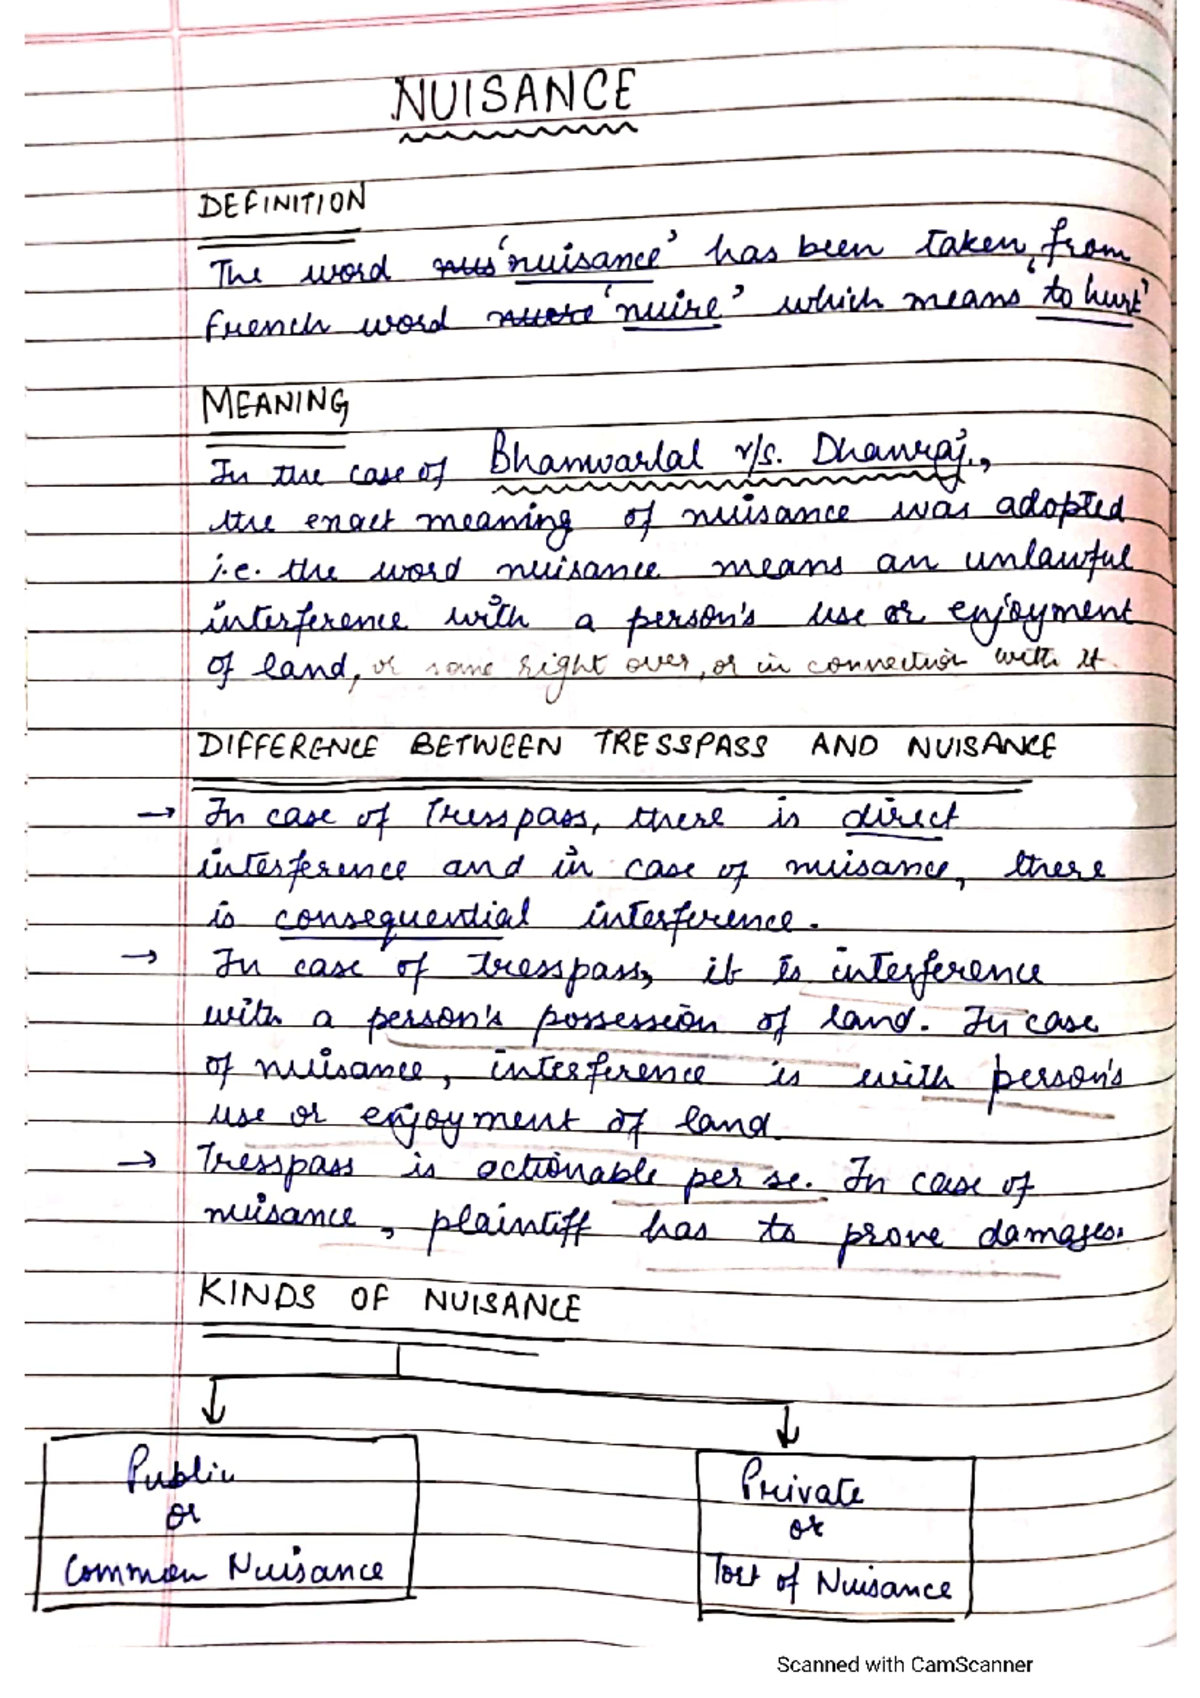 NUISANCE
DEFINITION
The word nus 'nuisance' has been taken from
french word nuore 'nuire' which means 'to hurt'
MEANING
In the case of Bhanwarlal v/s. Dhanraj,
the exact meaning of nuisance was adopted
i.e. the word nuisance means an unlawful
interference with a person's use or enjoyment
of land, or some right over, or in connection with it
DIFFERENCE BETWEEN TRESSPASS AND NUISANCE
→ In case of Tresspass, there is direct
interference and in case of nuisance, there
is consequential interference.
→ In case of tresspass, it is interference
with a person's possession of land. In case
of nuisance, interference is with person's
use or enjoyment of land.
→ Tresspass is actionable per se. In case of
nuisance, plaintiff has to prove damages.
KINDS OF NUISANCE
Public
or
Common Nuisance
Private
or
Tort of Nuisance
Scanned with CamScanner